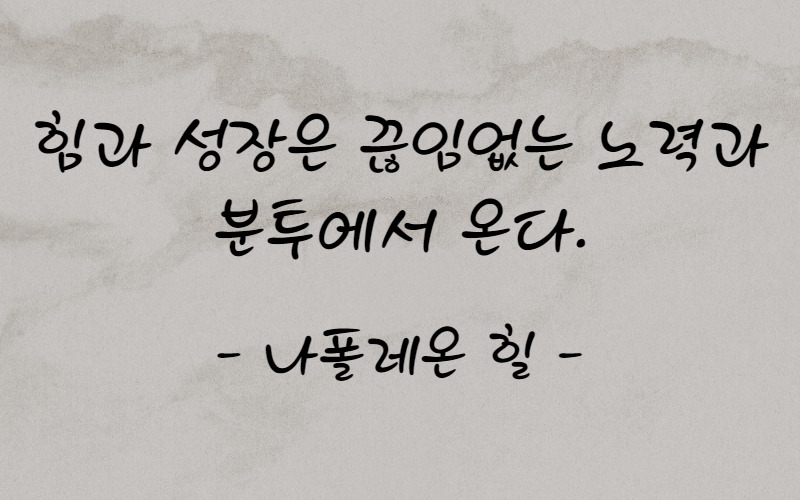 힘과 성장은 끊임없는 노력과
분투에서 온다.
- 나폴레온 힐 -